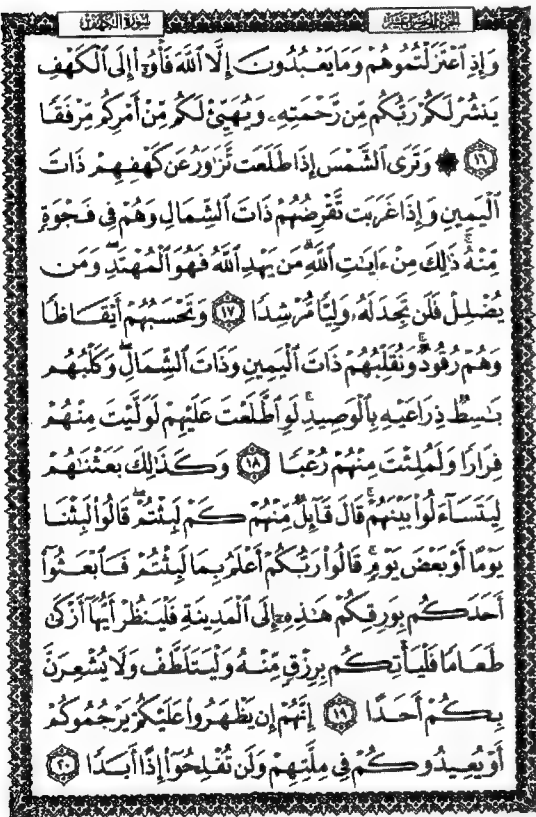 سُورَةُ الكَهْفِ
الجُزْءُ الخَامِسَ عَشَرَ
وَإِذِ ٱعْتَزَلْتُمُوهُمْ وَمَا يَعْبُدُونَ إِلَّا ٱللَّهَ فَأْوُۥٓاْ إِلَى ٱلْكَهْفِ
يَنشُرْ لَكُمْ رَبُّكُم مِّن رَّحْمَتِهِۦ وَيُهَيِّئْ لَكُم مِّنْ أَمْرِكُم مِّرْفَقًا
﴿١٦﴾ ۞ وَتَرَى ٱلشَّمْسَ إِذَا طَلَعَت تَّزَٰوَرُ عَن كَهْفِهِمْ ذَاتَ
ٱلْيَمِينِ وَإِذَا غَرَبَت تَّقْرِضُهُمْ ذَاتَ ٱلشِّمَالِ وَهُمْ فِى فَجْوَةٍ
مِّنْهُ ۚ ذَٰلِكَ مِنْ ءَايَٰتِ ٱللَّهِ ۗ مَن يَهْدِ ٱللَّهُ فَهُوَ ٱلْمُهْتَدِ ۖ وَمَن
يُضْلِلْ فَلَن تَجِدَ لَهُۥ وَلِيًّا مُّرْشِدًا ﴿١٧﴾ وَتَحْسَبُهُمْ أَيْقَاظًا
وَهُمْ رُقُودٌ ۚ وَنُقَلِّبُهُمْ ذَاتَ ٱلْيَمِينِ وَذَاتَ ٱلشِّمَالِ ۖ وَكَلْبُهُم
بَٰسِطٌ ذِرَاعَيْهِ بِٱلْوَصِيدِ ۚ لَوِ ٱطَّلَعْتَ عَلَيْهِمْ لَوَلَّيْتَ مِنْهُمْ
فِرَارًا وَلَمُلِئْتَ مِنْهُمْ رُعْبًا ﴿١٨﴾ وَكَذَٰلِكَ بَعَثْنَٰهُمْ
لِيَتَسَآءَلُواْ بَيْنَهُمْ ۚ قَالَ قَآئِلٌ مِّنْهُمْ كَمْ لَبِثْتُمْ ۖ قَالُواْ لَبِثْنَا
يَوْمًا أَوْ بَعْضَ يَوْمٍ ۚ قَالُواْ رَبُّكُمْ أَعْلَمُ بِمَا لَبِثْتُمْ فَٱبْعَثُوٓاْ
أَحَدَكُم بِوَرِقِكُمْ هَٰذِهِۦٓ إِلَى ٱلْمَدِينَةِ فَلْيَنظُرْ أَيُّهَآ أَزْكَىٰ
طَعَامًا فَلْيَأْتِكُم بِرِزْقٍ مِّنْهُ وَلْيَتَلَطَّفْ وَلَا يُشْعِرَنَّ
بِكُمْ أَحَدًا ﴿١٩﴾ إِنَّهُمْ إِن يَظْهَرُواْ عَلَيْكُمْ يَرْجُمُوكُمْ
أَوْ يُعِيدُوكُمْ فِى مِلَّتِهِمْ وَلَن تُفْلِحُوٓاْ إِذًا أَبَدًا ﴿٢٠﴾